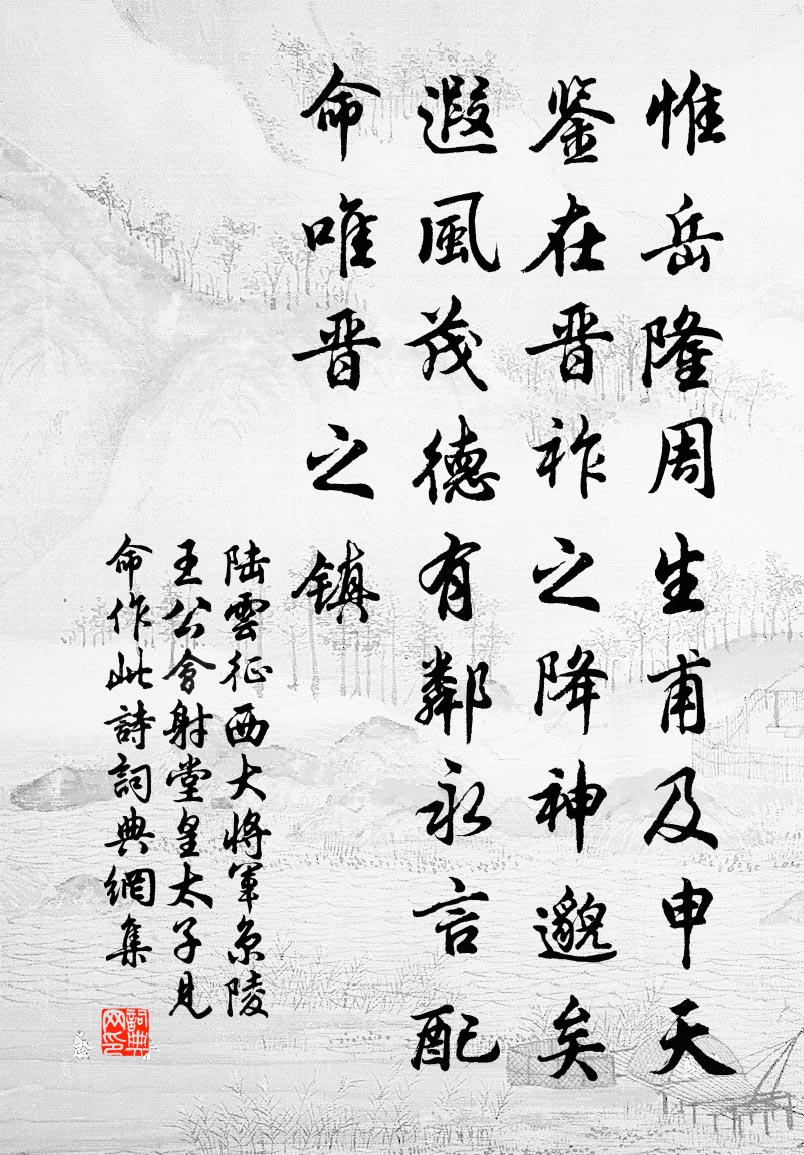 惟岳隆周生甫及申天
鉴在晋祚之降神邈矣
遐風茂德有鄰永言配
命唯晋之镇
陆雲征西大将军京陵
王公會射堂皇太子見
命作此詩詞典網集
詞典网印